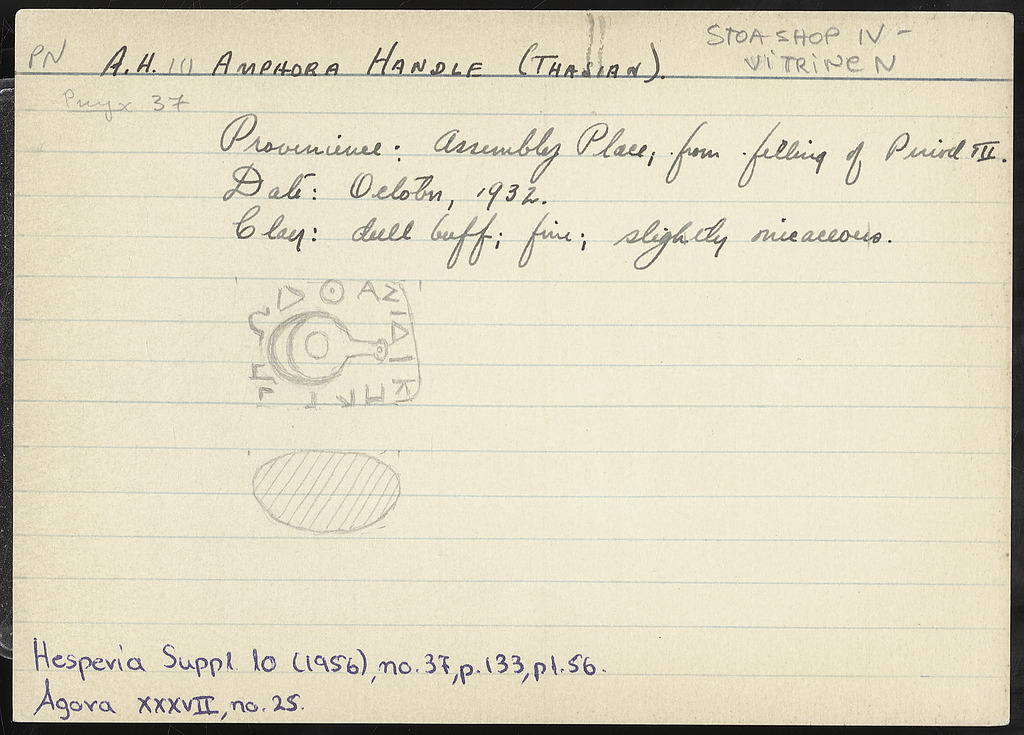 PN A.H. 111 AMPHORA HANDLE (THASIAN).
STOA SHOP IV -
VITRINE N
Pnyx 37
Provenience: Assembly Place; from filling of Period III.
Date: October, 1932.
Clay: dull buff; fine; slightly micaceous.
ΑΣ
ΙΔΙ
Hesperia Suppl. 10 (1956), no. 37, p. 133, pl. 56.
Agora XXXVII, no. 25.